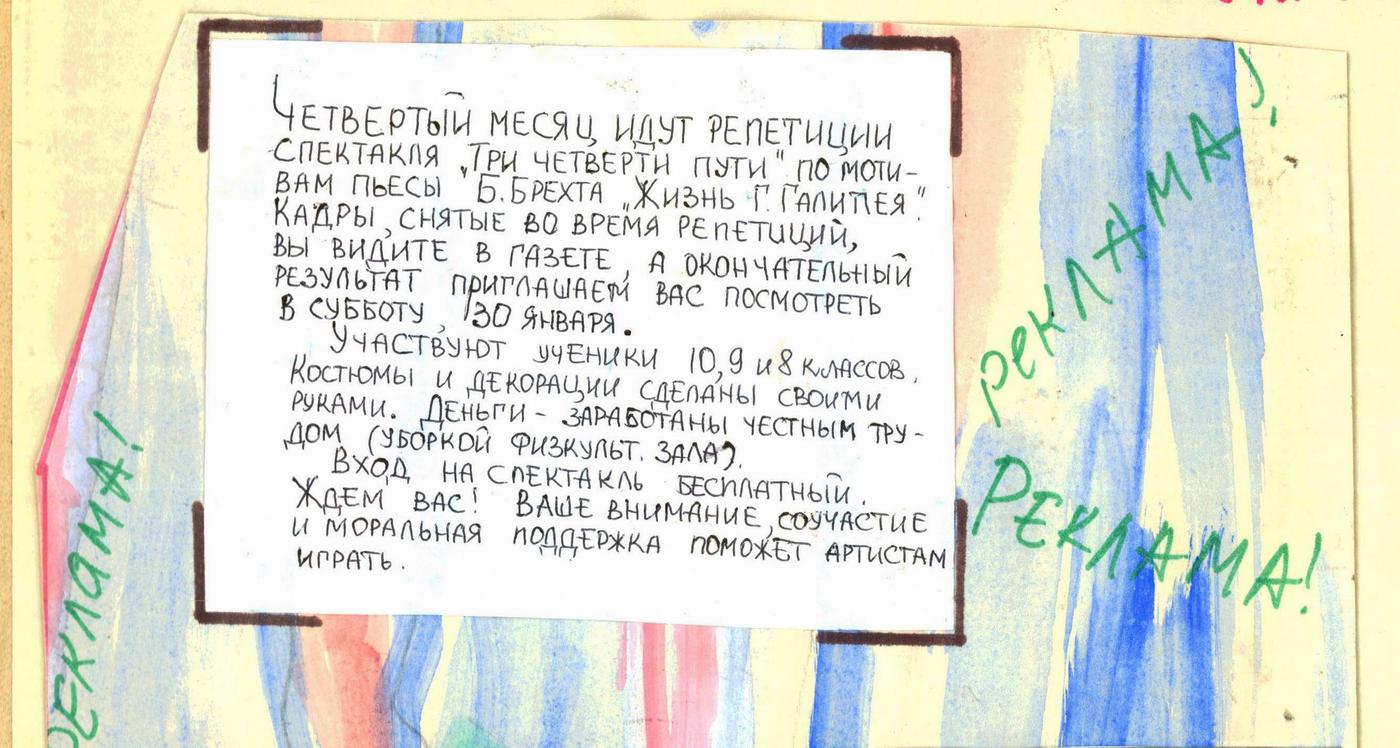 Четвертый месяц идут репетиции
спектакля „Три четверти пути" по моти-
вам пьесы Б. Брехта „Жизнь Г. Галилея".
Кадры, снятые во время репетиций,
вы видите в газете, а окончательный
результат приглашаем вас посмотреть
в субботу, 30 января.
Участвуют ученики 10, 9 и 8 классов.
Костюмы и декорации сделаны своими
руками. Деньги - заработаны честным тру-
дом (уборкой физкульт. зала).
Вход на спектакль бесплатный.
Ждем вас! Ваше внимание, соучастие
и моральная поддержка поможет артистам
играть.
реклама!
Реклама!
реклама!